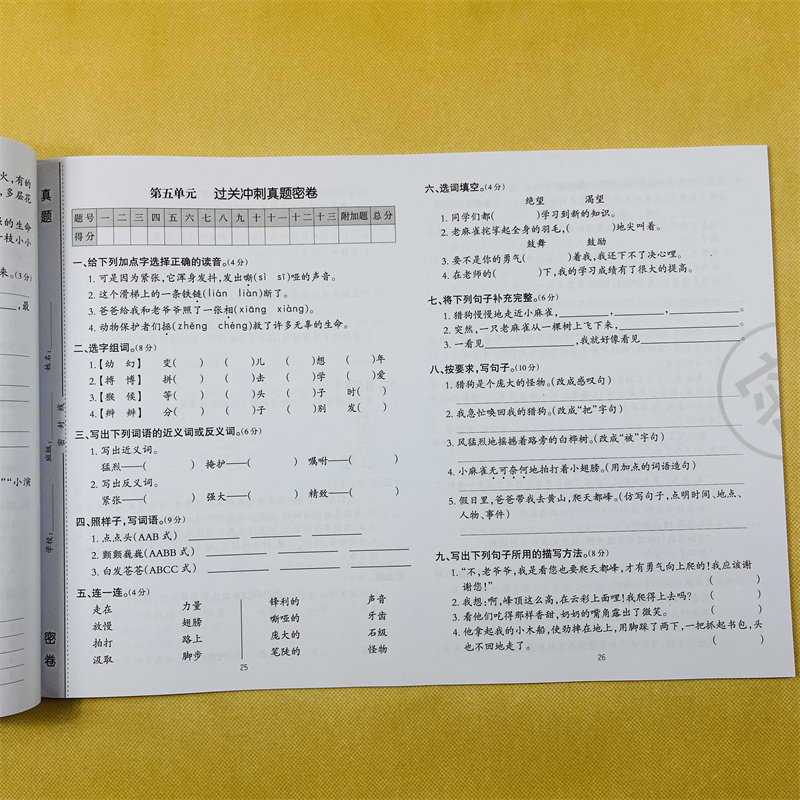 火，有的
多层花
的生命
一枝小小
来。(3分)
，最
”“小演
真题
密卷
姓名：
班级：
学校：
密封线
第五单元 过关冲刺真题密卷
题号 一 二 三 四 五 六 七 八 九 十 十一 十二 十三 附加题 总分
得分
一、给下列加点字选择正确的读音。(4分)
1. 可是因为紧张，它浑身发抖，发出嘶(sì sī)哑的声音。
2. 这个滑梯上的一条铁链(lián liàn)断了。
3. 爸爸给我和老爷爷照了一张相(xiāng xiàng)。
4. 动物保护者们拯(zhěng chéng)救了许多无辜的生命。
二、选字组词。(8分)
1.【幼 幻】 变( ) ( )儿 ( )想 ( )年
2.【搏 博】 拼( ) ( )击 ( )学 ( )爱
3.【猴 候】 等( ) ( )头 ( )子 时( )
4.【辩 辨】 分( ) ( )子 ( )别 发( )
三、写出下列词语的近义词或反义词。(6分)
1. 写出近义词。
猛烈——( ) 掩护——( ) 嘱咐——( )
2. 写出反义词。
紧张——( ) 强大——( ) 精致——( )
四、照样子，写词语。(9分)
1. 点点头(AAB 式)
2. 颤颤巍巍(AABB 式)
3. 白发苍苍(ABCC 式)
五、连一连。(4分)
走在 力量 锋利的 声音
放慢 翅膀 嘶哑的 牙齿
拍打 路上 庞大的 石级
汲取 脚步 笔陡的 怪物
25
六、选词填空。(4分)
绝望 渴望
1. 同学们都( )学习到新的知识。
2. 老麻雀挓挲起全身的羽毛，( )地尖叫着。
鼓舞 鼓励
3. 要不是你的勇气( )着我，我还下不了决心哩。
4. 在老师的( )下，我的学习成绩有了很大的提高。
七、将下列句子补充完整。(6分)
1. 猎狗慢慢地走近小麻雀，，，。
2. 突然，一只老麻雀从一棵树上飞下来，。
3. 一看见，我就好像看见。
八、按要求，写句子。(10分)
1. 猎狗是个庞大的怪物。(改成感叹句)
2. 我急忙唤回我的猎狗。(改成“把”字句)
3. 风猛烈地摇撼着路旁的白桦树。(改成“被”字句)
4. 小麻雀无可奈何地拍打着小翅膀。(用加点的词语造句)
5. 假日里，爸爸带我去黄山，爬天都峰。(仿写句子，点明时间、地点、
人物、事件)
九、写出下列句子所用的描写方法。(8分)
1. “不，老爷爷，我是看您也要爬天都峰，才有勇气向上爬的！我应该谢
谢您！” ( )
2. 我想：啊，峰顶这么高，在云彩上面哩！我爬得上去吗？ ( )
3. 看他们吃得那样香甜，奶奶的嘴角露出了微笑。 ( )
4. 他拿起我的小木船，使劲摔在地上，用脚踩了两下，一把抓起书包，头
也不回地走了。 ( )
26